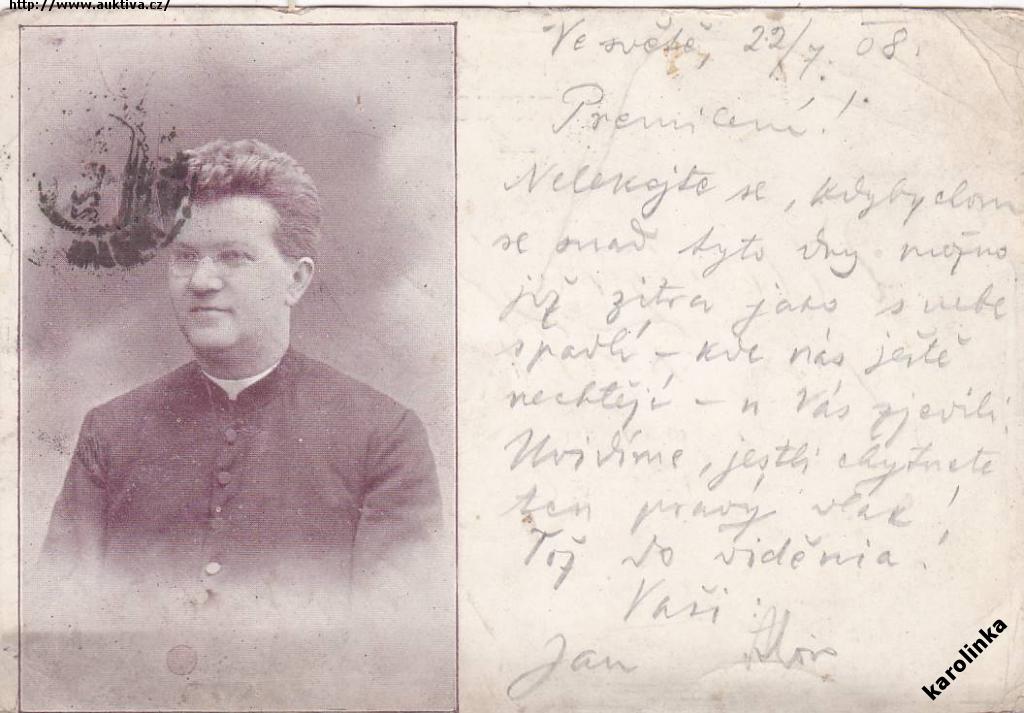 http://www.auktiva.cz/
Ve světě, 22/7. 08.
Premilení!
Nelekejte se, kdybychom
se snad tyto dny možno
již zítra jako s nebe
spadlí – kde nás ještě
nechtějí – u Vás zjevili.
Uvidíme, jestli chytnete
ten pravý vlak!
Tož do viděnia!
Vaši:
Jan Alois
karolinka